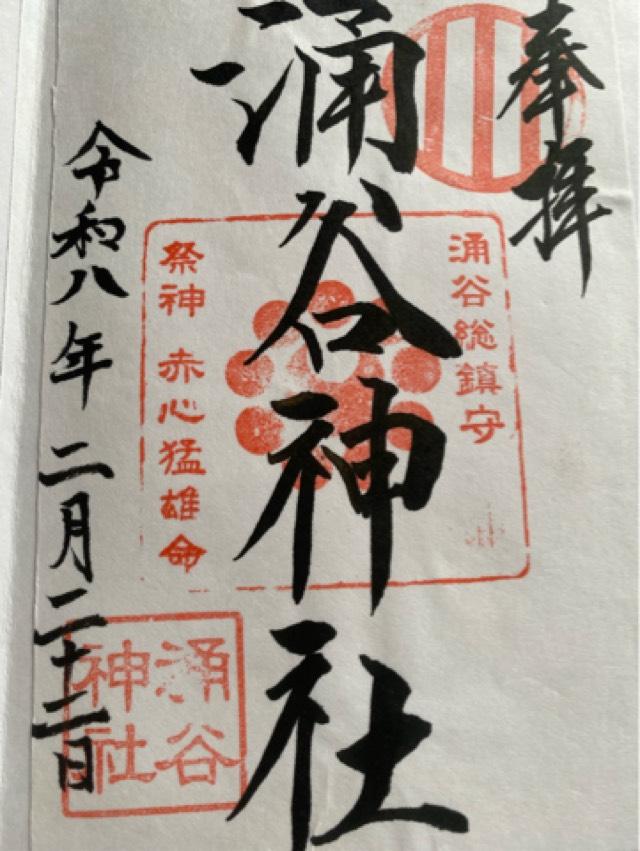 奉拝
涌谷神社
涌谷総鎮守
祭神 赤心猛雄命
令和八年 二月二十二日
涌谷
神社